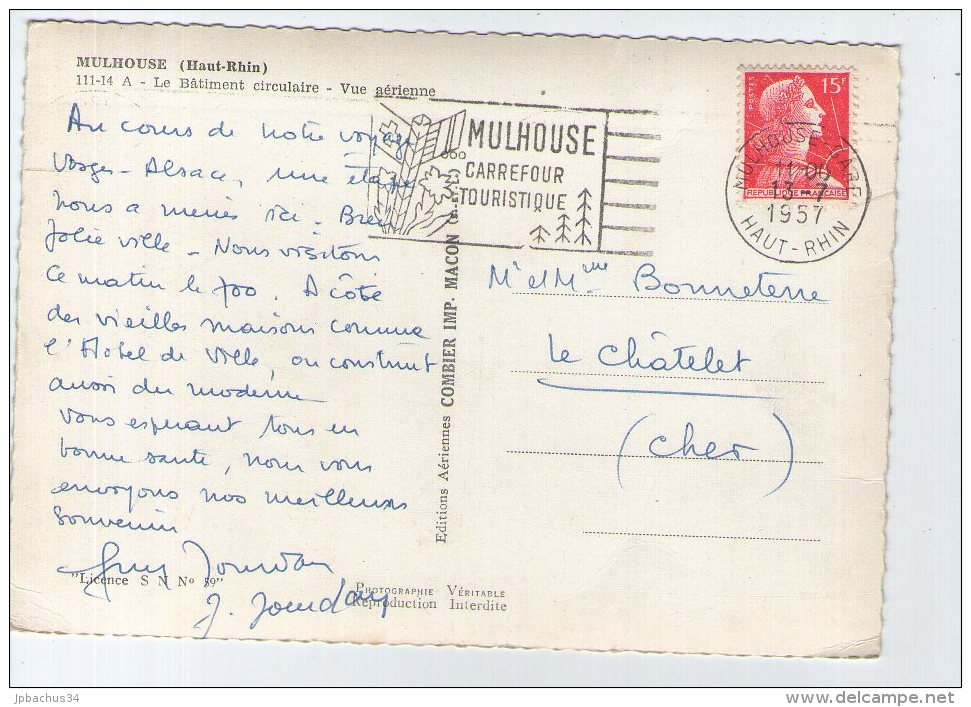 MULHOUSE (Haut-Rhin)
111-14 A - Le Bâtiment circulaire - Vue aérienne
Au cours de notre voyage
Vosges - Alsace, une étape
nous a menés ici - Bien
jolie ville - Nous visitons
ce matin le zoo. A côté
des vieilles maisons comme
l'Hotel de Ville, on construit
aussi du moderne
Vous espérant tous en
bonne santé, nous vous
envoyons nos meilleurs
souvenirs
Guy Jourdan
J. Jourdan
"Licence S N No 59"
PHOTOGRAPHIE VÉRITABLE
Reproduction Interdite
Editions Aériennes COMBIER IMP. MACON
MULHOUSE
CARREFOUR
TOURISTIQUE
POSTES
15F
REPUBLIQUE FRANÇAISE
MULHOUSE GARE
13-7
1957
HAUT-RHIN
Mr et Mme Bonneterre
Le Châtelet
(Cher)
jpbachus34
www.delcampe.net